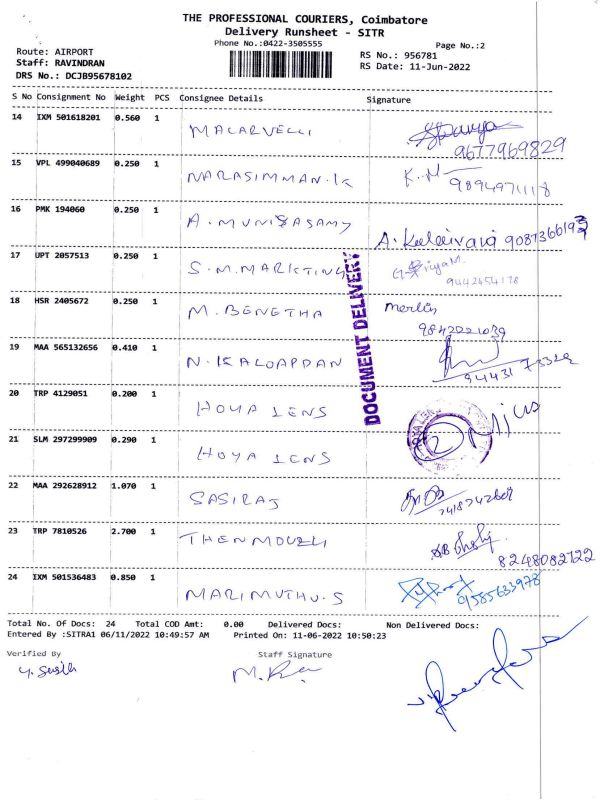 THE PROFESSIONAL COURIERS, Coimbatore
Delivery Runsheet - SITR
Phone No.:0422-3505555
Page No.:2
Route: AIRPORT
Staff: RAVINDRAN
DRS No.: DCJB95678102
RS No.: 956781
RS Date: 11-Jun-2022
S No Consignment No Weight PCS Consignee Details Signature
14 IXM 501618201 0.560 1 MALARVELLI
9677969829
15 VPL 499040689 0.250 1 NARASIMMAN.K K.M
9894971118
16 PMK 194060 0.250 1 A.MUNISASAMY A. Kalaivani
17 UPT 2057513 0.250 1 S.M.MARKTING Priya M.
9442454178
18 HSR 2405672 0.250 1 M. BENETHA merlin
9842221039
19 MAA 565132656 0.410 1 N. KALOAPDAN
20 TRP 4129051 0.200 1 HOYA LENS
21 SLM 297299909 0.290 1 HOYA LENS
22 MAA 292628912 1.070 1 SASIRAJ
23 TRP 7810526 2.700 1 THENMOUZLI
8248082122
24 IXM 501536483 0.850 1 MARIMUTHU.S
9585633978
DOCUMENT DELIVERY
Total No. Of Docs: 24 Total COD Amt: 0.00 Delivered Docs: Non Delivered Docs:
Entered By :SITRA1 06/11/2022 10:49:57 AM Printed On: 11-06-2022 10:50:23
Verified By Staff Signature